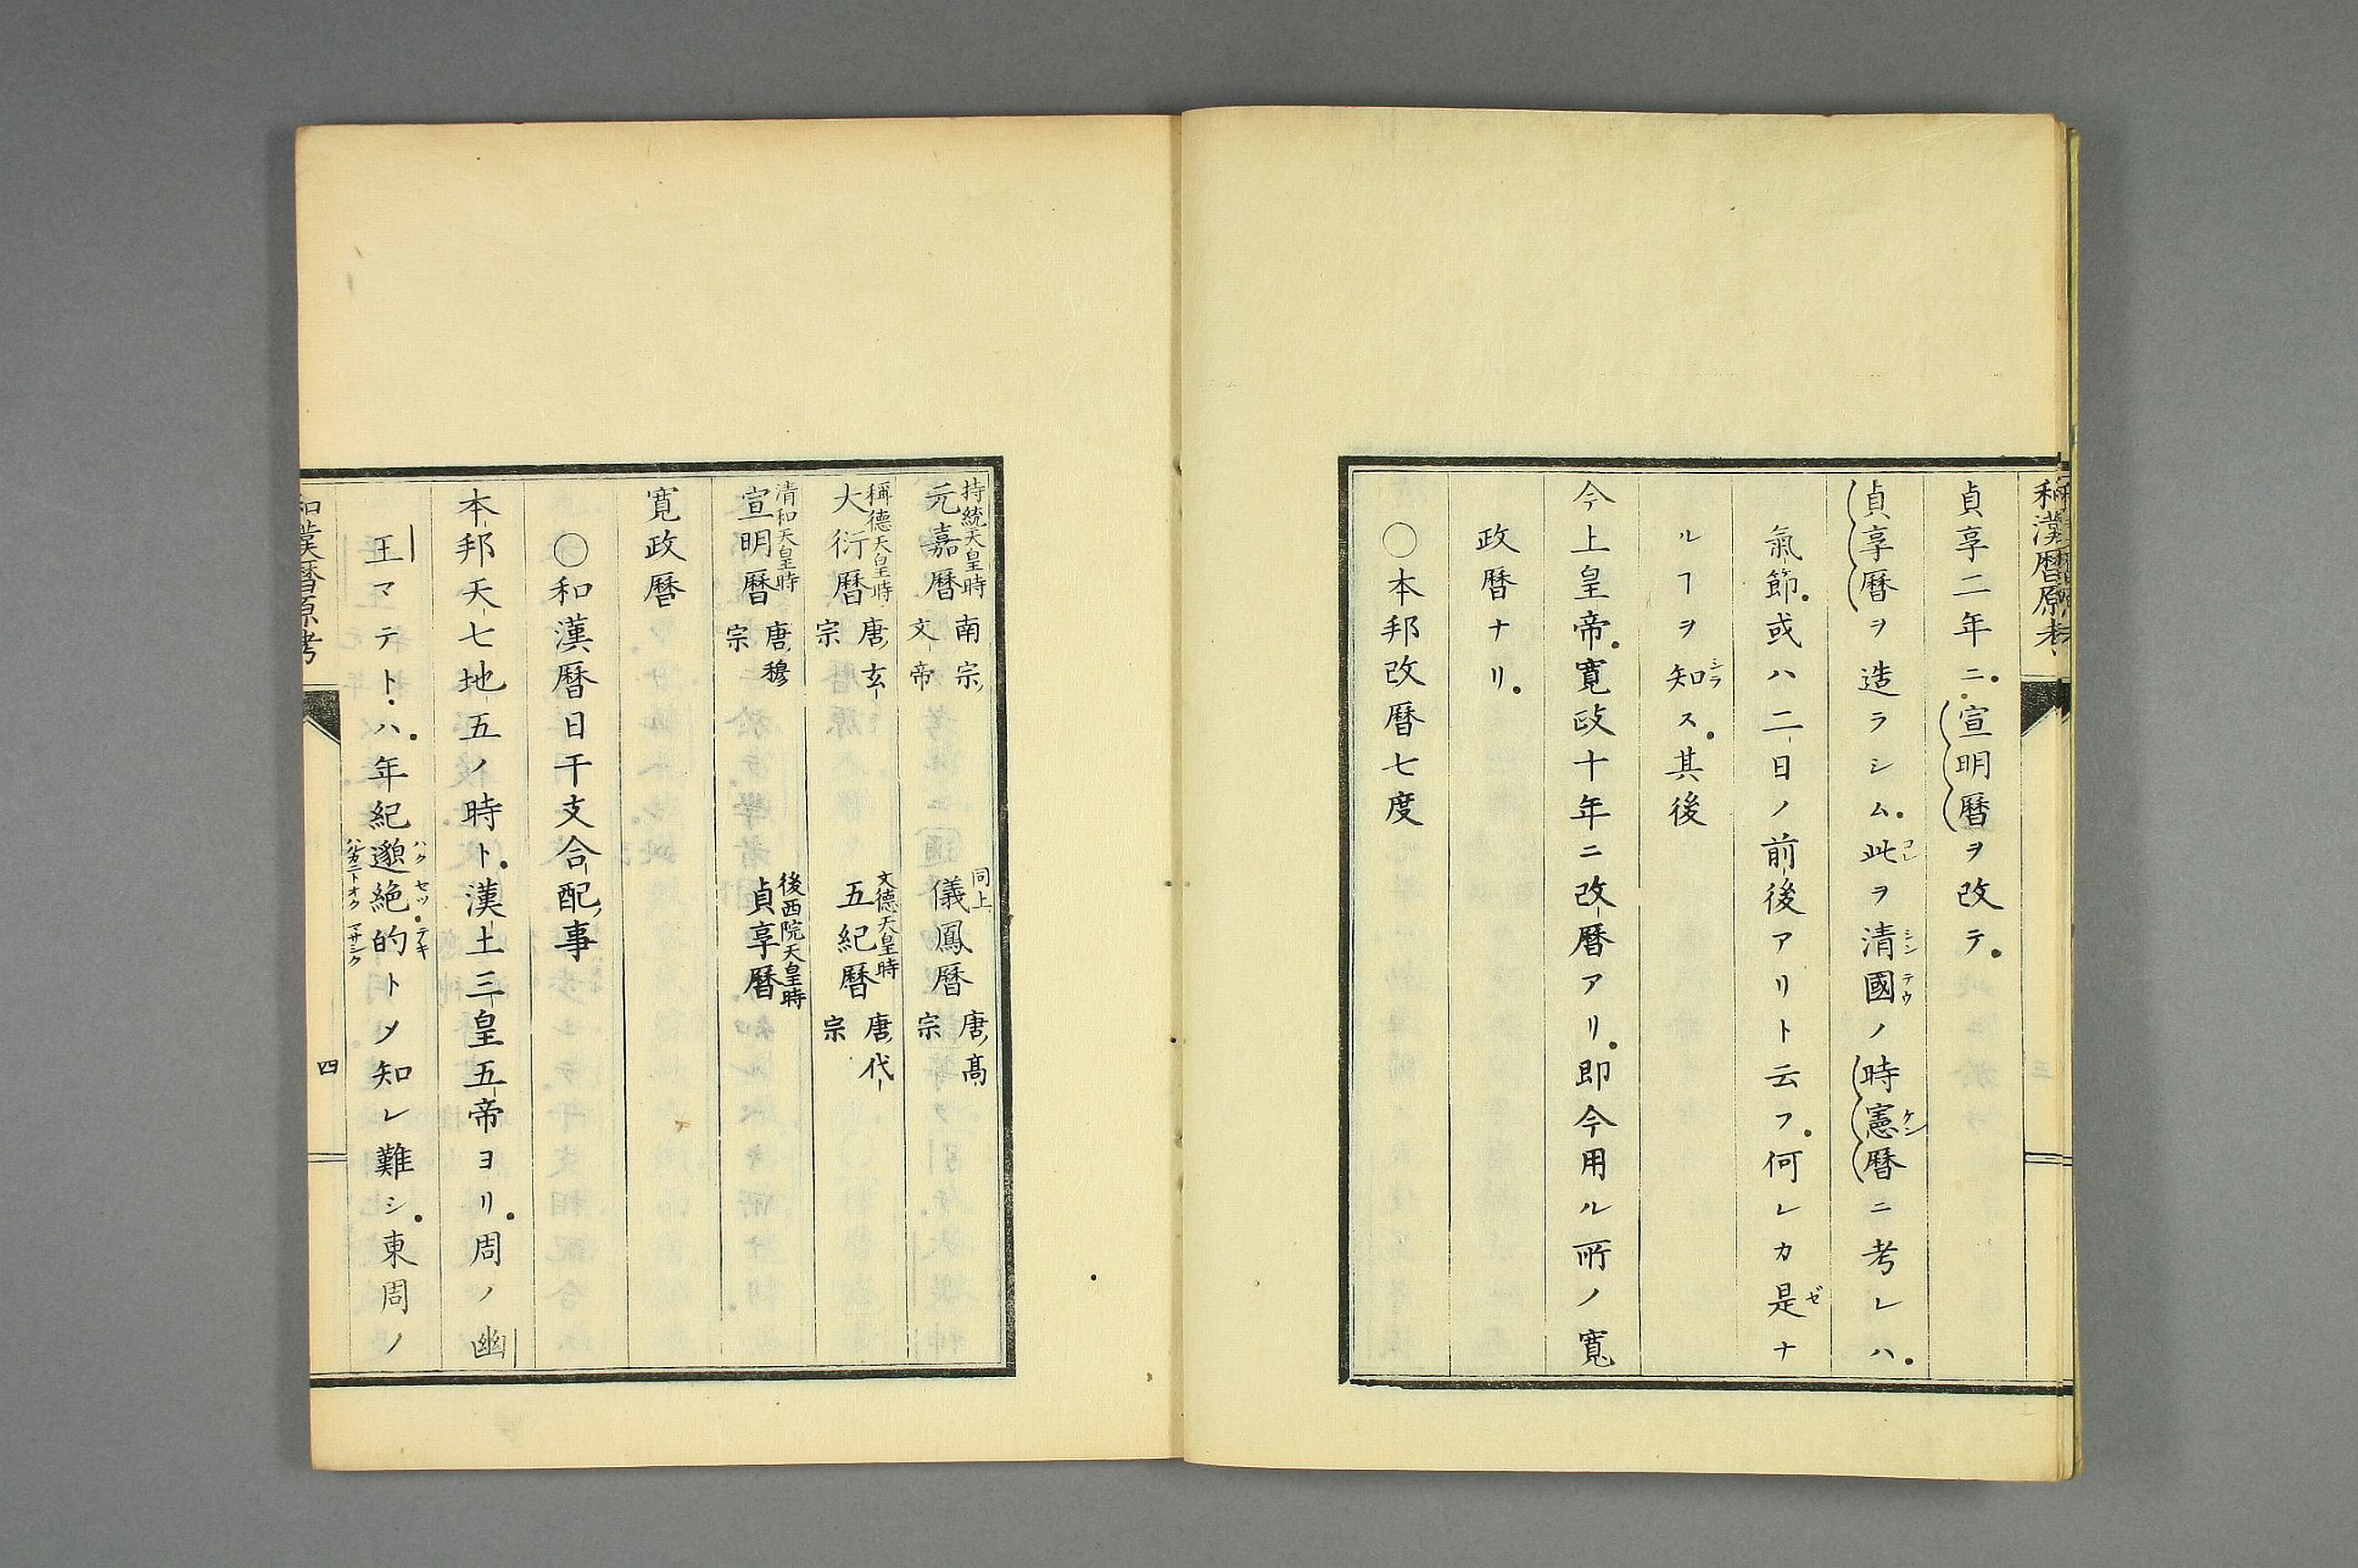 和漢暦原考
貞享二年ニ宣明暦ヲ改テ
貞享暦ヲ造ラシム此ヲ清國ノ時憲暦ニ考レハ
コレ
シン テウ
ケン
氣節或ハ二日ノ前後アリト云フ何レカ是ナ
ゼ
ルヿヲ知ス其後
シラ
今上皇帝寛政十年ニ改暦アリ即今用ル所ノ寛
政暦ナリ
○本邦改暦七度
持統天皇時
元嘉暦 南宗文帝
同上
儀鳳暦 唐高宗
稱德天皇時
大衍暦 唐玄宗
文德天皇時
五紀暦 唐代宗
清和天皇時
宣明暦 唐穆宗
後西院天皇時
貞享暦
寛政暦
○和漢暦日干支合配事
本邦天七地五ノ時ト漢土三皇五帝ヨリ周ノ幽
王マテトハ年紀邈絶的トメ知レ難シ東周ノ
ハク セツ テキ
ハルカニトオク マサシク
和漢暦原考
四